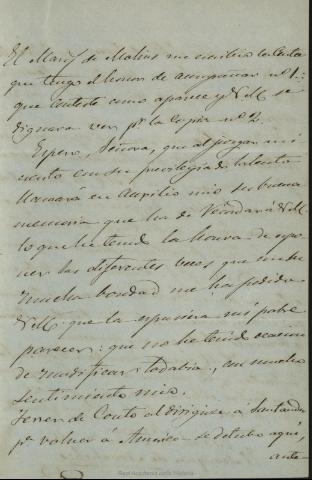 El Marq.s de Molins me escribio la carta
que tengo el honor de acompañar nº 1:
que contesté como aparece y V.M. se
dignará ver pr. la copia nº 2.
Espero, Señora, que al juzgar mi
escrito con su privilegiado talento
llamará en auxilio mio su buena
memoria que ha de recordar á V.M.
lo que he tenido la honra de expo
ner las diferentes veces que en su
mucha bondad me ha pedido
V.M. que la espusiera mi pobre
parecer: que no he tenido ocasion
de modificar todabia, con mucho
sentimiento mio.
Ferrer de Couto al dirigirse á Santander
pa. volver á America se detubo aqui,
ante-
Real Academia de la Historia